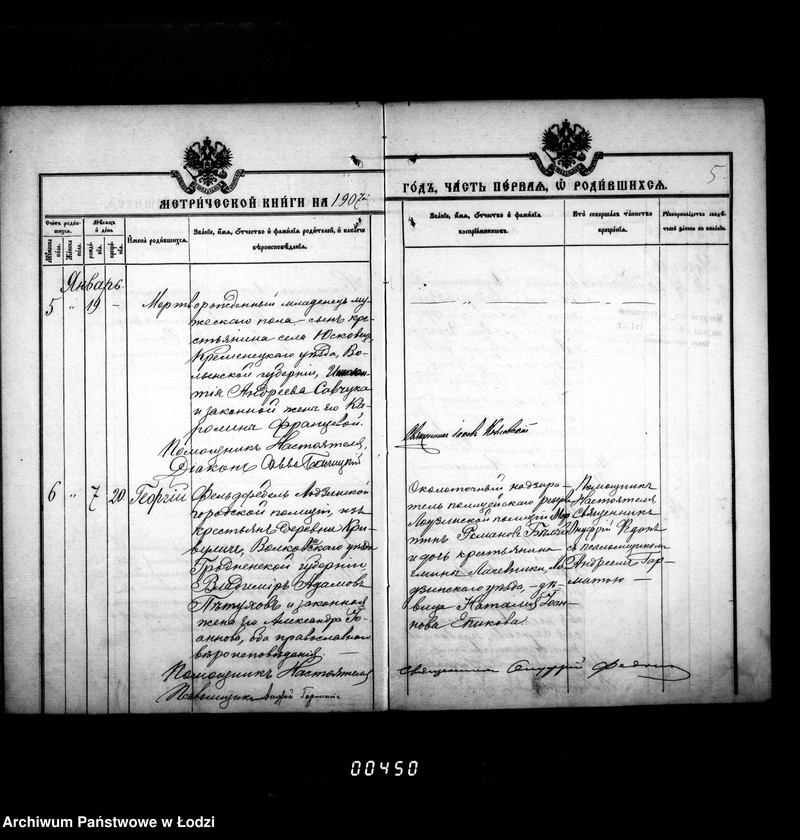 МЕТРИЧЕСКОЙ КНИГИ НА 1907
ГОДЪ, ЧАСТЬ ПЕРВАЯ, Ѡ РОДИВШИХСЯ.
5
Счетъ родив-
шихся.
Мѣсяцъ
и день
Мужеска
пола.
Женска
пола.
рожде-
нія.
креще-
нія.
Имена родившихся.
Званіе, имя, отчество и фамилія родителей, и какого
вѣроисповѣданія.
Званіе, имя, отчество и фамилія
воспріемниковъ.
Кто совершалъ таинство
крещенія.
Январь
5 " 19 –
Мертворожденный младенецъ му-
жескаго пола – сынъ кре-
стьянина села Юсковецъ,
Кременецкаго уѣзда, Во-
лынской губерніи,
Андреева Савчука
и законной жены его Ка-
ролины Францевой.
Помощникъ Настоятеля,
Діаконъ Савва
Священникъ
6 " 7 20
Георгій
Фельдфебель Лодзинской
городской полиціи, изъ
крестьянъ деревни Кри-
вуличи, Волковскаго уѣзда
Гродненской губерніи
Владиміръ Адамовъ
Пѣтуховъ и законная
жена его Александра Іо-
аннова, оба православнаго
вѣроисповѣданія. –
Помощникъ Настоятеля
Псаломщикъ Андрей
Околоточный надзира-
тель полицейскаго
Лодзинской полиціи Мар-
тинъ Романовъ
и дочь крестьянина
гмины
дзинскаго уѣзда, – дѣ-
вица Наталія Іоан-
нова
Помощникъ
Настоятеля
Священникъ
Онуфрій
съ псаломщикомъ
Андреемъ Гар-
матою –
Священникъ Онуфрій
00450
Archiwum Państwowe w Łodzi